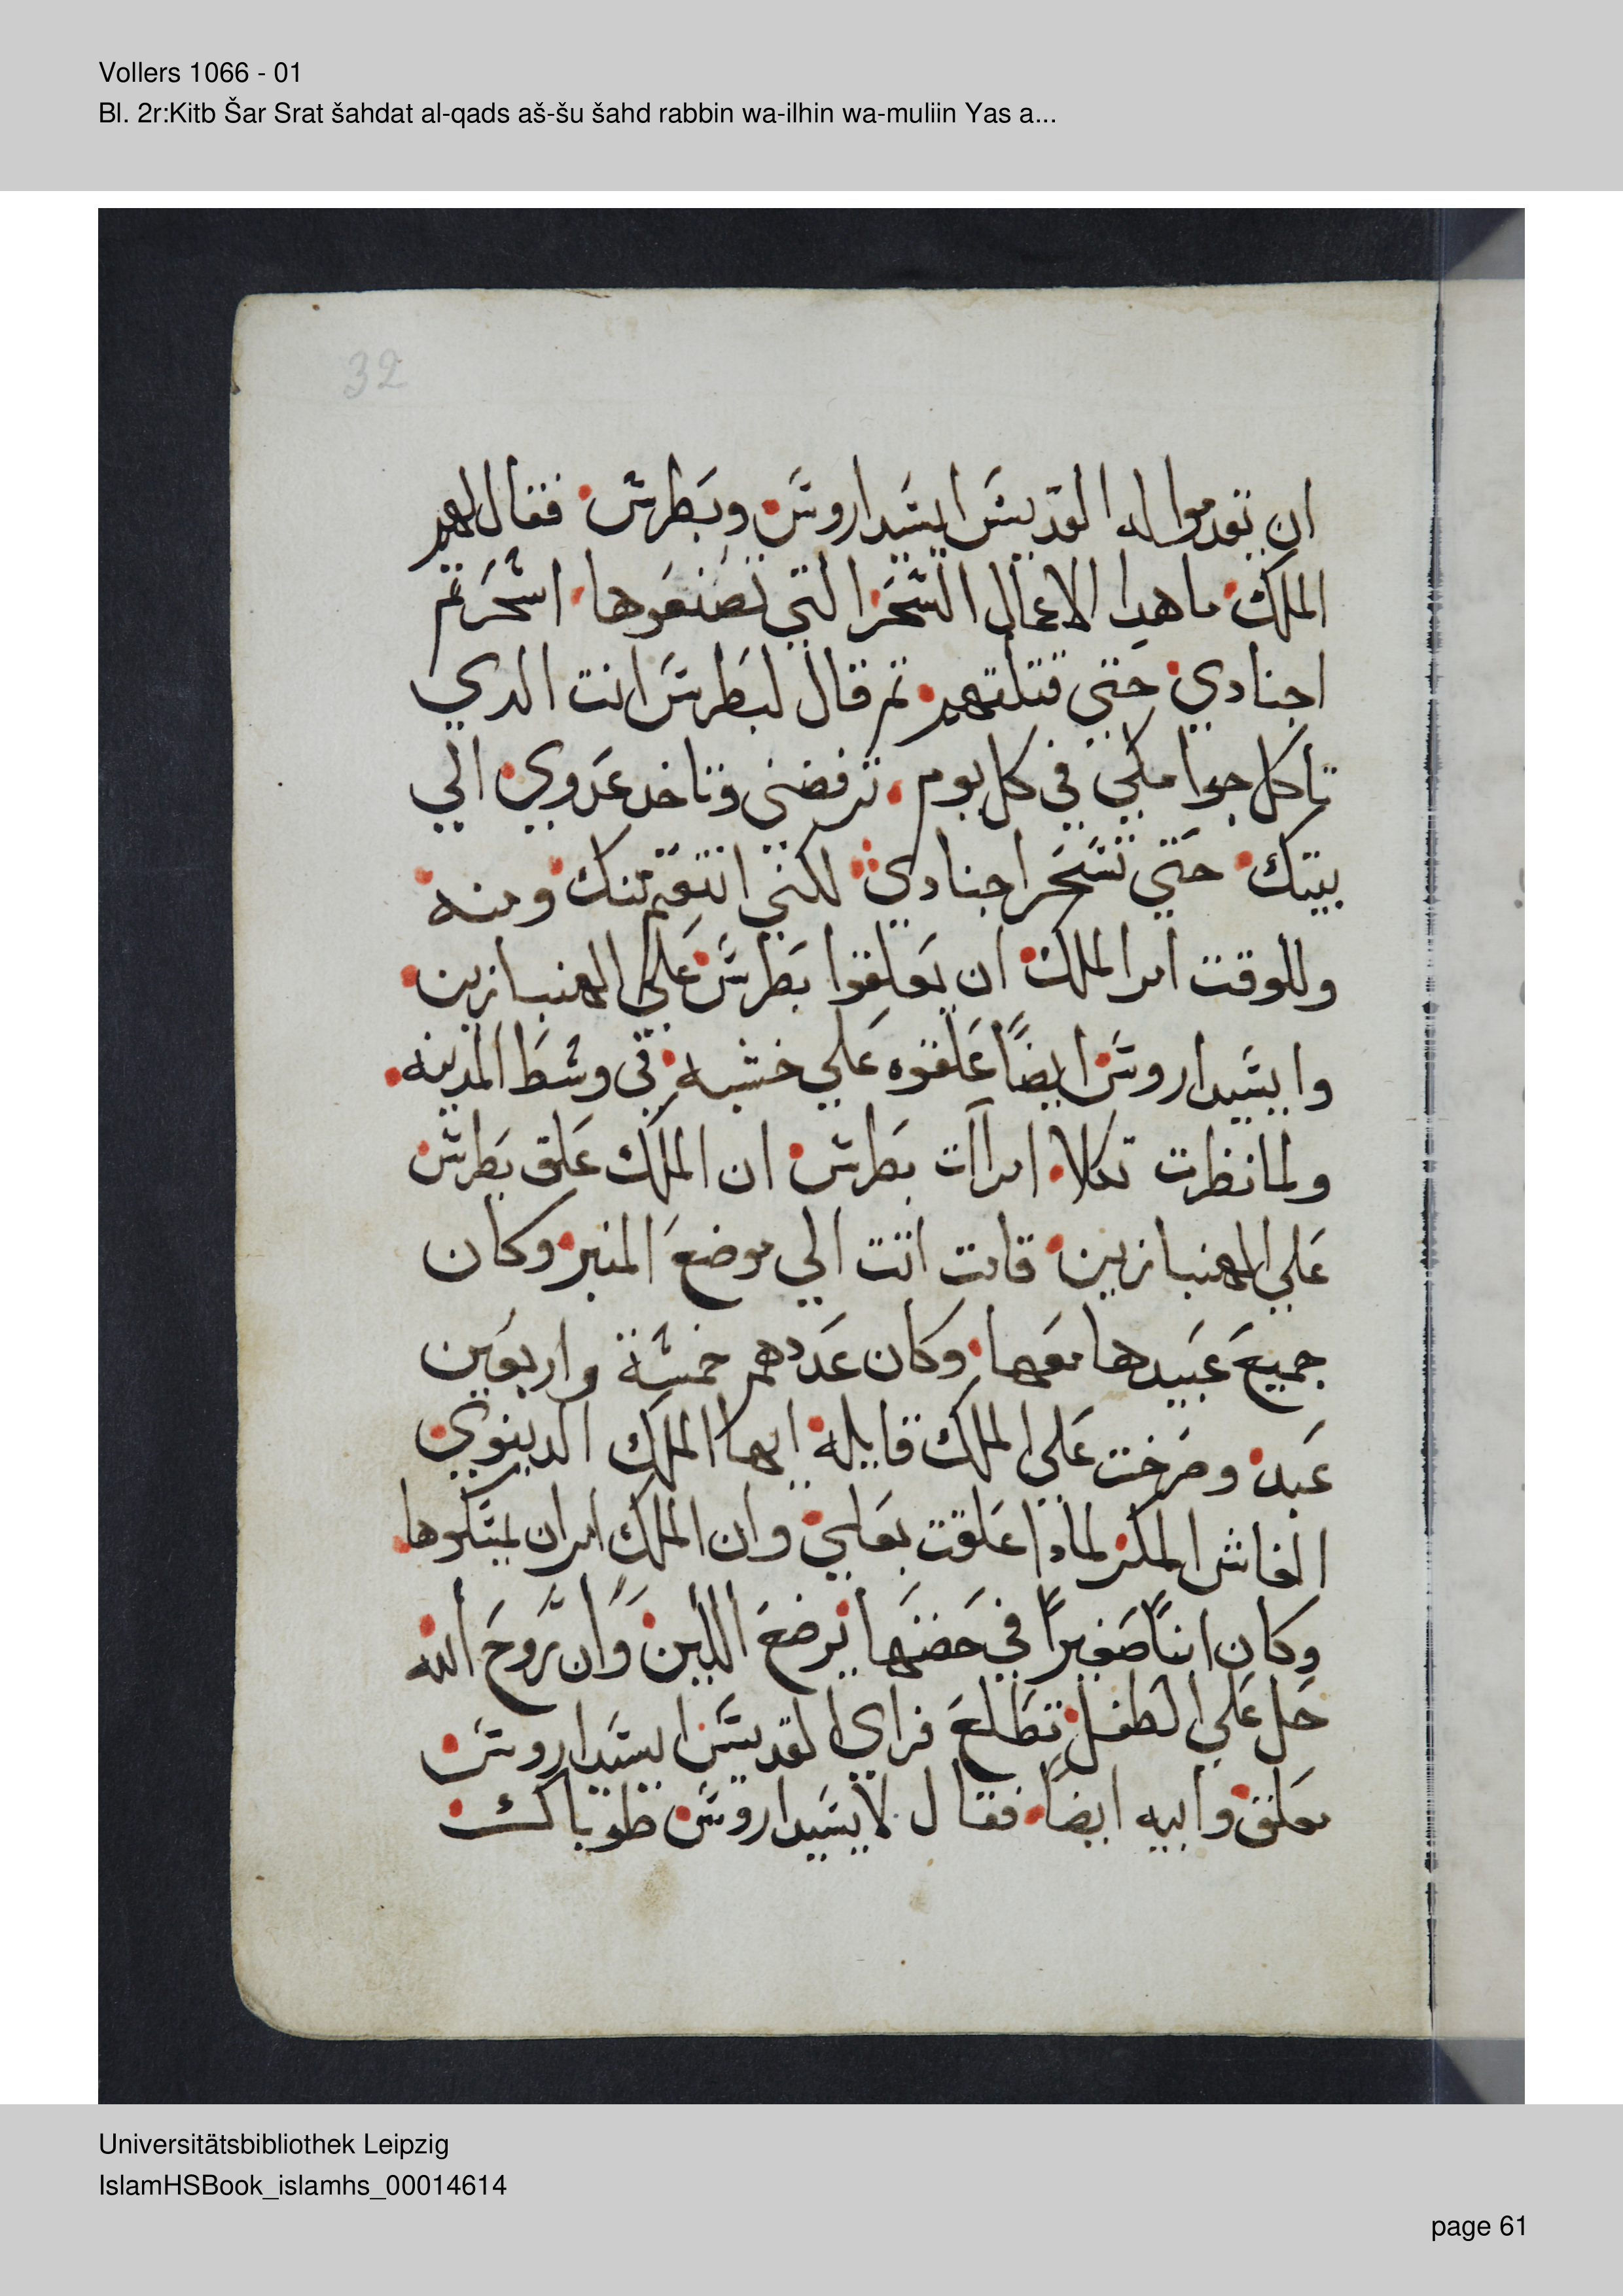 Vollers 1066 - 01
Bl. 2r:Kitb Šar Srat šahdat al-qads aš-šu šahd rabbin wa-ilhin wa-muliin Yas a...
32
ان يقدموا له القديس ايسيداروس وبطرس فقال لهم
الملك ما هدا الاعمال السحر التي تصنعوها اسحرتم
اجنادي حتي قتلتهم تم قال لبطرس انت الدي
تاكل جوامكي في كل يوم ترفضني وتاخد عدوي الي
بيتك حتي تسحر اجنادي لكني انتقم منك ومنه
وللوقت امر الملك ان يعلقوا بطرس علي الهنبازين
وايسيداروس ايضًا علقوه علي خشبه في وسط المدينه
ولما نظرت تكلا امراآت بطرس ان الملك علق بطرس
علي الهنبازين قامت اتت الي موضع المنبر وكان
جميع عبيدها معها وكان عددهم خمسة واربعين
عبد وصرخت علي الملك قايله ايها الملك الدينوي
الفاش المكر لمادا علقت بعلي وان الملك امر ان يمسكوها
وكان ابنًا صغيرًا في حضنها يرضع اللبن وان روح الله
حل علي الطفل تطلع فراي القديس ايسيداروس
معلق وابيه ايضًا فقال لايسيداروس طوباك
Universitätsbibliothek Leipzig
IslamHSBook_islamhs_00014614
page 61